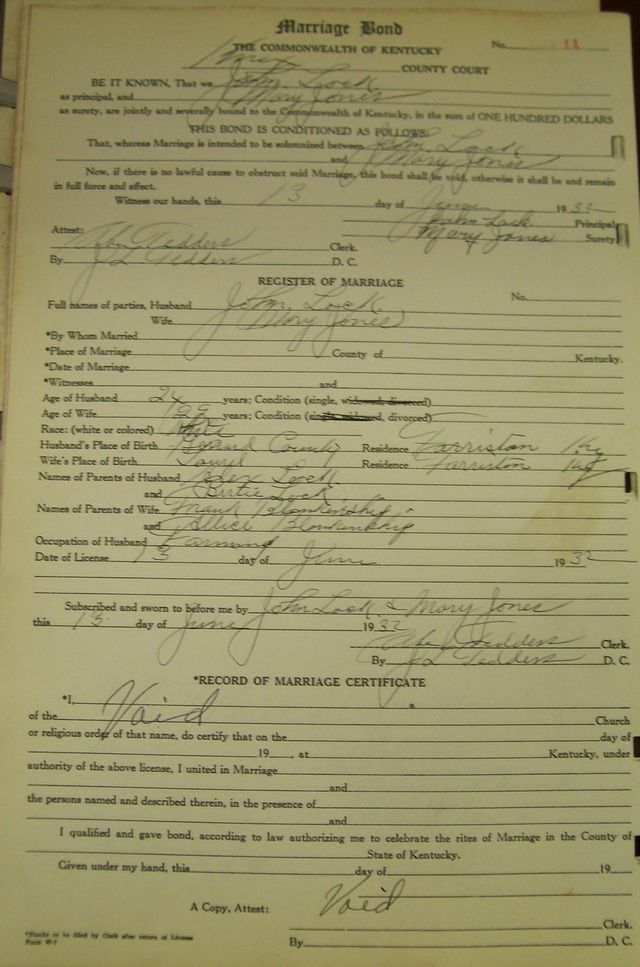 Marriage Bond
THE COMMONWEALTH OF KENTUCKY
No. 11
Knox COUNTY COURT
BE IT KNOWN, That we John Lock
as principal, and Mary Jones
as surety, are jointly and severally bound to the Commonwealth of Kentucky, in the sum of ONE HUNDRED DOLLARS
THIS BOND IS CONDITIONED AS FOLLOWS:
That, whereas Marriage is intended to be solemnized between John Lock
and Mary Jones
Now, if there is no lawful cause to obstruct said Marriage, this bond shall be void, otherwise it shall be and remain
in full force and effect.
Witness our hands, this 13 day of June 1932
John Lock Principal
Attest: Mary Jones Surety
Tedders Clerk.
By J L Tedders D. C.
REGISTER OF MARRIAGE
No.
Full names of parties, Husband John Lock
Wife Mary Jones
*By Whom Married
*Place of Marriage County of Kentucky.
*Date of Marriage
*Witnesses and
Age of Husband 24 years; Condition (single, widowed, divorced)
Age of Wife 22 years; Condition (single, widowed, divorced)
Race: (white or colored) White
Husband's Place of Birth County Residence Farriston Ky
Wife's Place of Birth Laurel Residence Farriston Ky
Names of Parents of Husband Lock
and Birtie Lock
Names of Parents of Wife Frank Blankenship
and Allice Blankenship
Occupation of Husband Farming
Date of License 13 day of June 1932
Subscribed and sworn to before me by John Lock & Mary Jones
this 13 day of June 1932
Tedders Clerk.
By J L Tedders D. C.
*RECORD OF MARRIAGE CERTIFICATE
*I, a
of the Void Church
or religious order of that name, do certify that on the day of
19 , at Kentucky, under
authority of the above license, I united in Marriage
and
the persons named and described therein, in the presence of
and
I qualified and gave bond, according to law authorizing me to celebrate the rites of Marriage in the County of
State of Kentucky.
Given under my hand, this day of 19
Void
A Copy, Attest:
Clerk.
By D. C.
*Blanks to be filled by Clerk after return of License